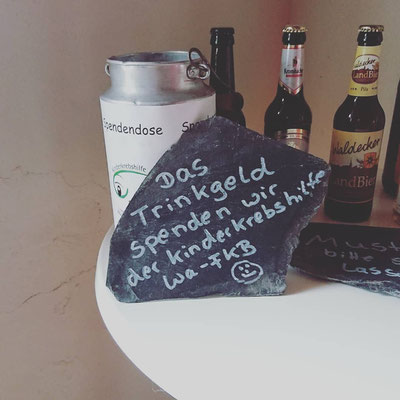 Spendendose
Das
Trinkgeld
spenden wir
der kinderkrebshilfe
Wa-FKB
Krombacher
Waldecker
LandBier
Pils
Waldecker
LandBier
Must
bitte s
Lasse